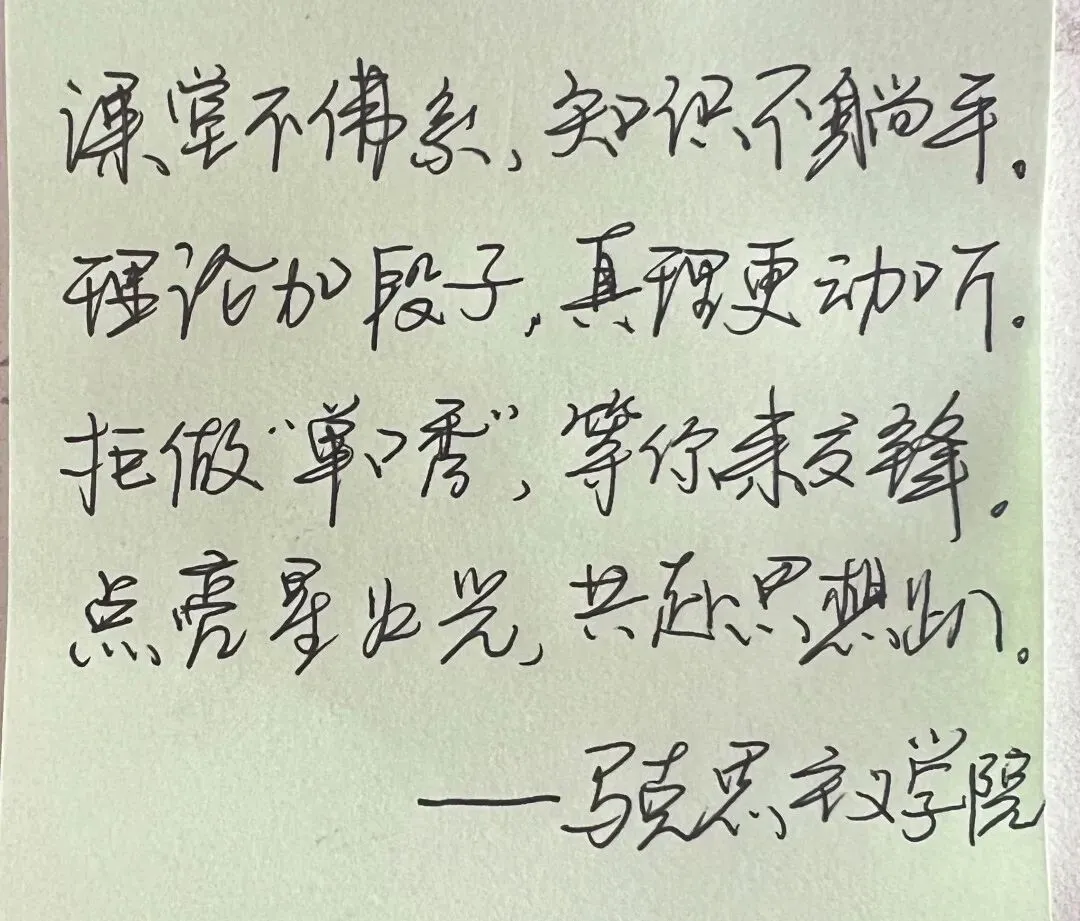 课堂不佛系,知识不躺平。
理论加段子,真理更动听。
拒做“单口秀”,等你来交锋。
点亮星火光,共赴思想。
——马克思主义学院